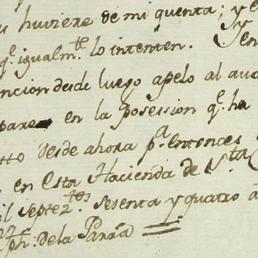 huviere de mi quenta; y e
q.e igualm.te lo intenten. Y en
ncion desde luego apelo al au
pare en la possession q.e ha
desde ahora p.a entonces
en Esta Hacienda de S.ta
il septez.tos sesenta y quatro a
Jph: dela Parra